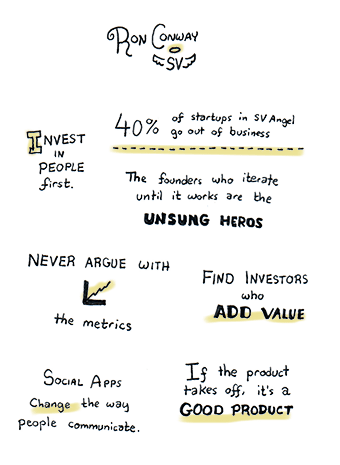 Ron Conway
SV
Invest
in
people
first.
40% of startups in SV Angel
go out of business
The founders who iterate
until it works are the
UNSUNG HEROS
Never argue with
the metrics
Find Investors
who
ADD VALUE
Social Apps
Change the way
people communicate.
If the product
takes off, it's a
GOOD PRODUCT